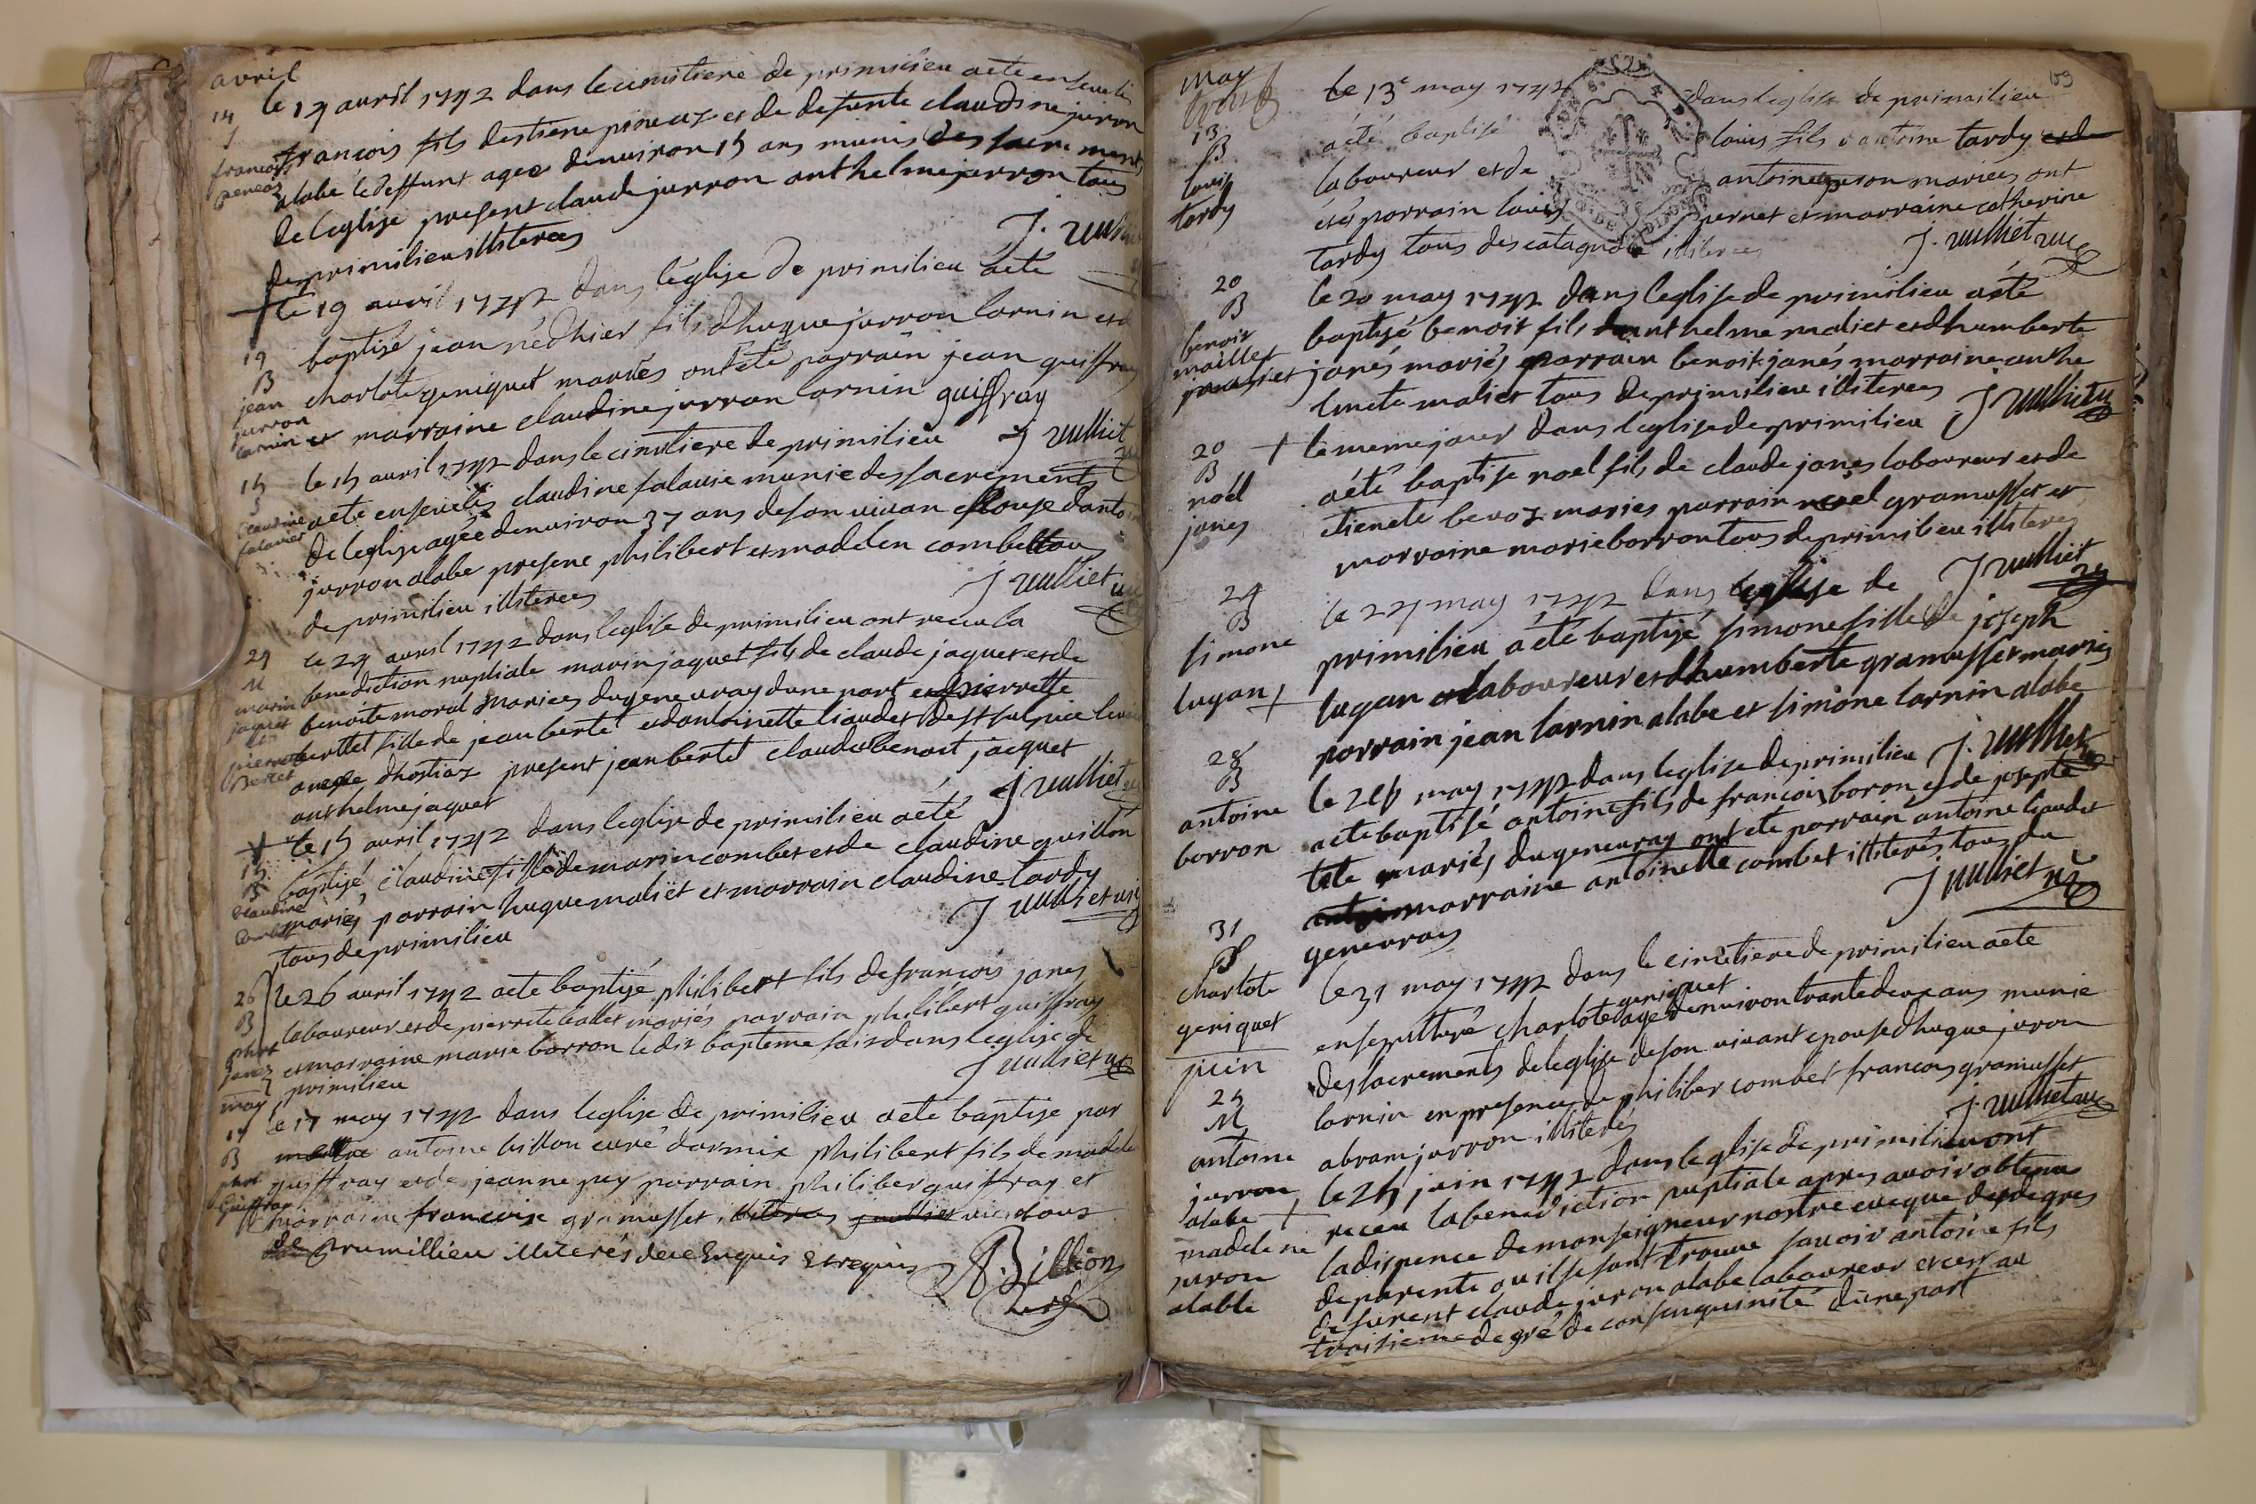 avril
le 14 avril 1742 dans le cimitiere de primilieu a ete enseveli
14
S
francois
peneaz
francois fils destiene pineaz et de defunte claudine jurron
alabe le deffunt agee denuiron 15 ans munis des sacrements
de leglise present claude jurron anthelme jurron tous
de primilieu illiterees
J. vulliet
19
B
jean
jurron
larnin
le 19 auril 1742 dans leglise de primilieu aeté
baptisé jean né dhier fils dhugue jurron larnin et de
charlote geniquet mariés ont été parrain jean guiffray
et marraine claudine jurron larnin guiffray
J vulliet
15
S
claudine
falavier
le 15 auril 1742 dans le cimitiere de primilieu
aete ensevelis claudine falauie munie des sacrements
de leglise agée denuiron 37 ans de son viuan espouse dantoine
jurron alabe presene philibert et madelen combet tous
de primilieu illiterees
J vulliet
24
M
marin
jaquet
et
pierrette
bertet
le 24 auril 1742 dans leglise de primilieu ont receu la
benediction nuptiale marin jaquet fils de claude jaquet et de
benoite moral mariees du geneuray dune part et pierrette
bertet fille de jean berté et dantoinette liaudet de st sulpice
anexe dhostiaz present jean berté claude benoit jacquet
anthelme jaquet
J vulliet
15
B
claudine
combet
le 15 avril 1742 dans leglise de primilieu aété
baptisé claudine fille de marin combet et de claudine guillon
mariés parrain hugue maliet et marrain claudine tardy
tous de primilieu
J vulliet
26
B
phbt
janez
le 26 auril 1742 aete baptisé philibert fils de francois janes
laboureur et de pierrete ballet mariés parrain philibert guiffray
et marraine marie borron ledit bapteme fait dans leglise de
primilieu
J vulliet
may
17
B
phbt
Guiffray
le 17 may 1742 dans leglise de primilieu aete baptise par
antoine billon curé darmix philibert fils de madele
guiffray et de jeanne pey parrain philiber guiffray et
marraine francoise gramusset
de prumillieu illiterés de ce Enquis et requis
A. Billion
may
13
B
louis
tardy
le 13e may 1742 dans leglise de primilieu
aété baptisé louis fils dantoine tardy
laboureur et de antoine mariees ont
été parrain louis pernet et marraine catherine
tardy tous des catagnole illiterees
J. vulliet
20
B
benoit
maillet
le 20 may 1742 dans leglise de primilieu aété
baptisé benoit fils danthelme maliet et dhumberte
janés mariés parrain benoit janés marraine anthe
lmete maliet tous de primilieu illiterees
J vulliet
20
B
noél
janes
le meme jour dans leglise de primilieu
aété baptise noel fils de claude janes laboureur et de
etienete bevoz maries parrain noel gramusset et
marraine marie borron tous de primilieu illiterés
J vulliet
24
B
simone
lugan
le 24 may 1742 dans leglise de
primilieu aété baptisé simone fille de joseph
lugan laboureur et dhumberte gramusset mariés
parrain jean larnin alabe et simone larnin alabe
J. vulliet
28
B
antoine
borron
le 28 may 1742 dans leglise de primilieu
aete baptisé antoine fils de francois boron et de josepte
tete mariés du geneuray ont eté parrain antoine liaudet
marraine antoinette combet illiterés tous du
geneuray
J vulliet
31
S
charlote
geniquet
le 31 may 1742 dans le cimetiere de primilieu aete
ensepulturé charlote geniquet agee denuiron trante deux ans munie
des sacrements de leglise de son uiuant epouse dhugue juron
larnin en presence de philiber combet francois gramusset
abram jurron illiterés
J. vulliet
juin
25
M
antoine
jurron
alabe
madelene
juron
alable
le 25 juin 1742 dans leglise de primilieu ont
receu la benediction nuptiale apres auoir obtenu
la dispence de monseigneur nostre eueque des degres
de parente ou il se sont trouue sauoir antoine fils
de furent claude juron alabe laboureur et cest au
troisieme degré de consenguinité dune part